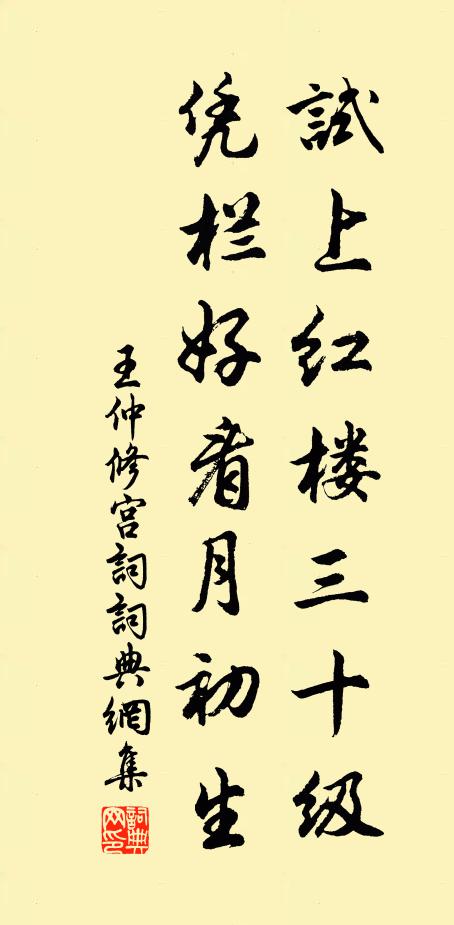 試上红楼三十级
凭栏好看月初生
王仲修宫詞詞典網集
詞典网印